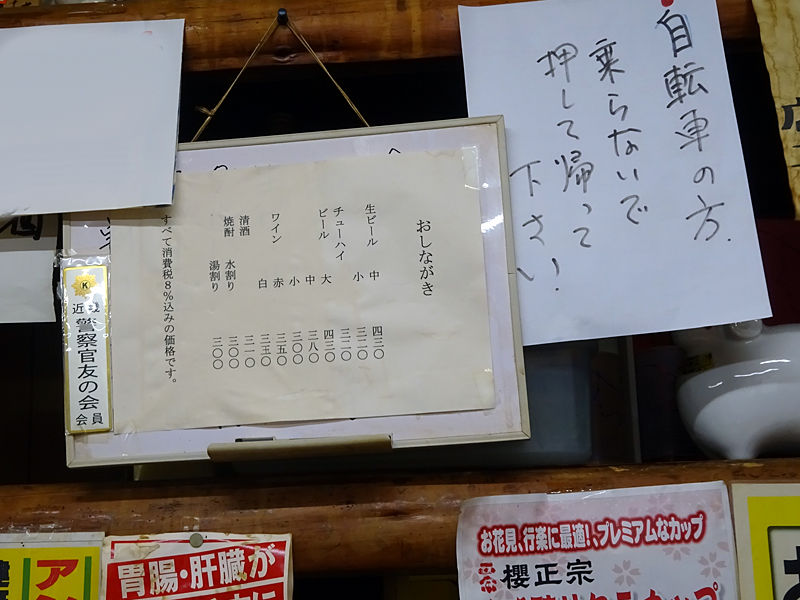 自転車の方.
乗らないで
押して帰って
下さい!
おしながき
生ビール 中 四三〇
小 三二〇
チューハイ 三二〇
ビール 大 四三〇
中 三八〇
小 三〇〇
ワイン 赤 三五〇
白 三五〇
清酒 三一〇
焼酎 水割り 三〇〇
湯割り 三〇〇
すべて消費税8%込みの価格です。
K
近畿
警察官友の会
会員
アン
胃腸・肝臓が
お花見、行楽に最適!、プレミアムなカップ
櫻正宗